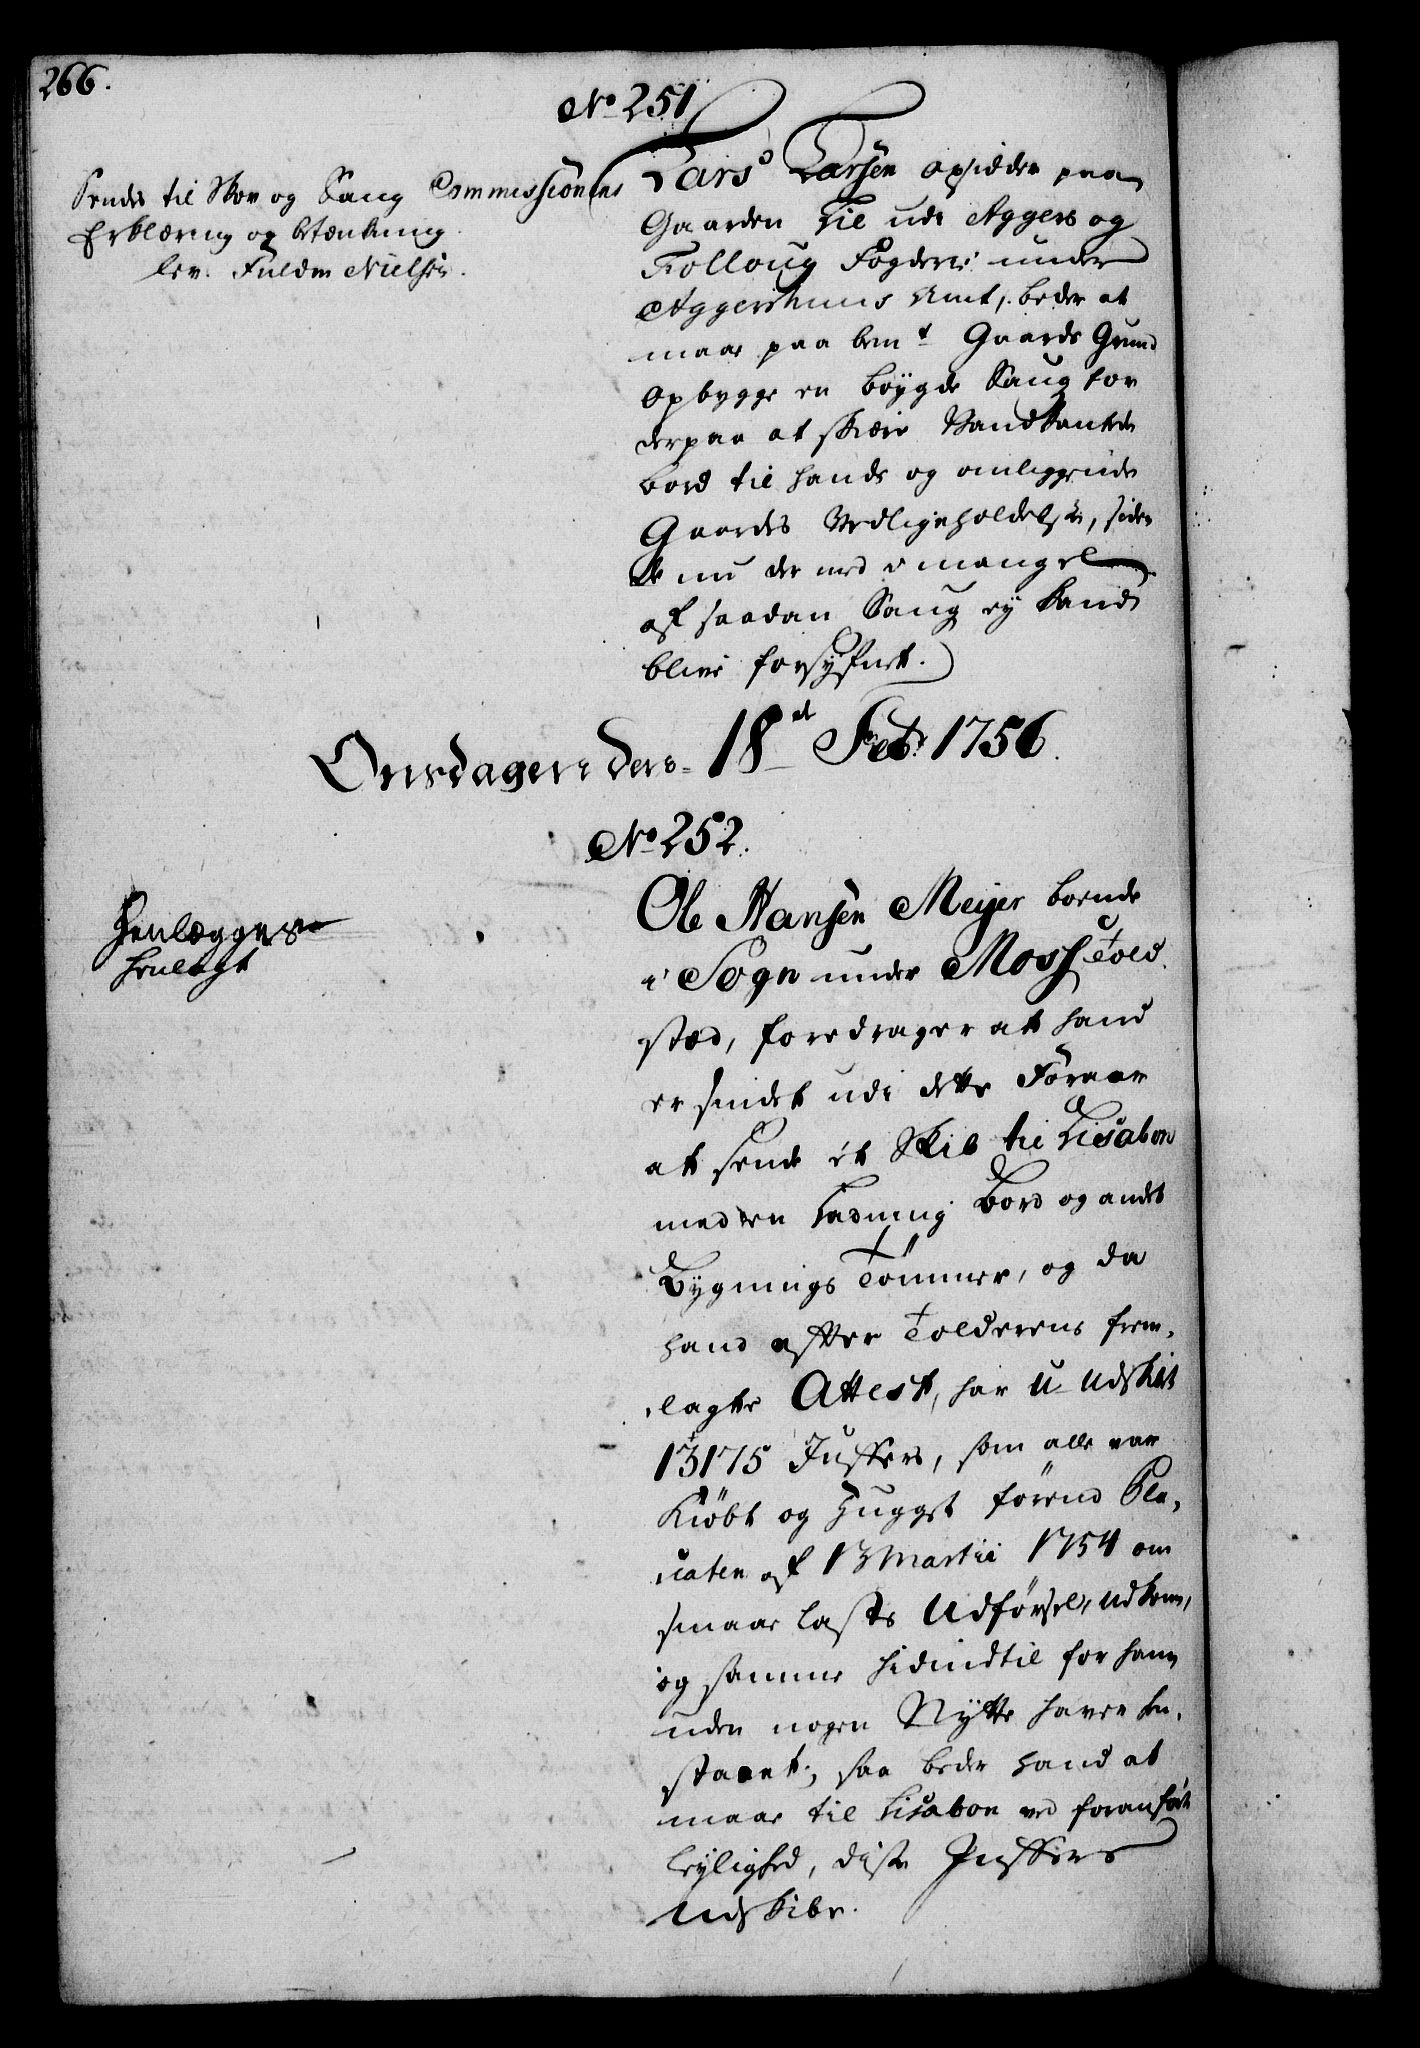 266.
No 251
Sendes til Skov og Saug Commissionens
Erklæring og betænkning
lev. Fuldm Nielsen.
Lars Larsen opsidder paa
Gaarden Lie udi Aggers og
Folloug Fogderie under
Aggershuus Amt, beder at
maae paa bemt Gaards Grund
opbygge en bøygde Saug for
derpaa at skiære Vandkantede
bord til hands og omliggende
Gaardes Vedligeholdelse, siden
de nu der med i mangel
af saadan Saug ey kand
blive forsyfnet.
Onsdagen den 18de Feb: 1756.
No 252.
Henlægges
henlagt
Ole Hansen Meyer boende
i Sogn under Moss Told
stæd, foredrager at hand
er sindet udi dette Foraar
at sende et Skib til Lisabon
med en Ladning Bord og andet
Bygnings Tømmer, og da
hand efter Tolderens frem,
lagte Attest, har u-udskibt
13175 Juffers, som alle var
Kiøbt og Hugget førend Pla,
caten af 13 Martii 1754 om
smaae lasts Udførsel, udkom,
og samme hidindtil for ham
uden nogen Nytte haver hen,
staaet; saa beder hand at
maae til Lisabon ved foranførte
leylighed, disse Juffers
udskibe.